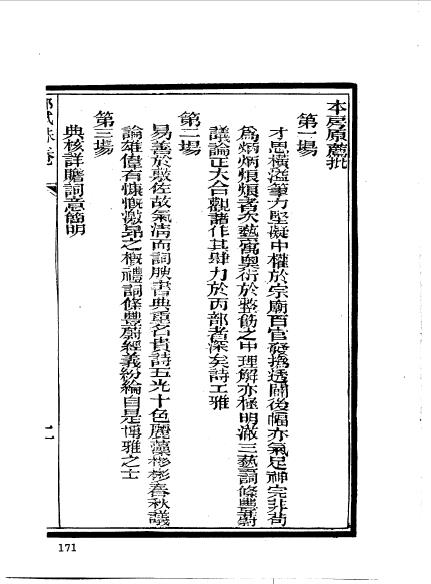 本房原薦批
第一場
才思橫溢筆力堅凝中權於宗廟百官發揭透闢後幅亦氣足神完非苟
為炳炳烺烺者次藝寓奧衍於整飭之中理解亦極明澈三藝詞條豐蔚
議論正大合觀諸作其肆力於丙部者深矣詩工雅
第二場
易善於敷佐故氣清而詞腴書典重名貴詩五光十色麗藻彬彬春秋議
論雄偉有慷慨激昂之概禮詞條豐蔚經義紛綸自是博雅之士
第三場
典核詳贍詞意簡明
硃卷
171